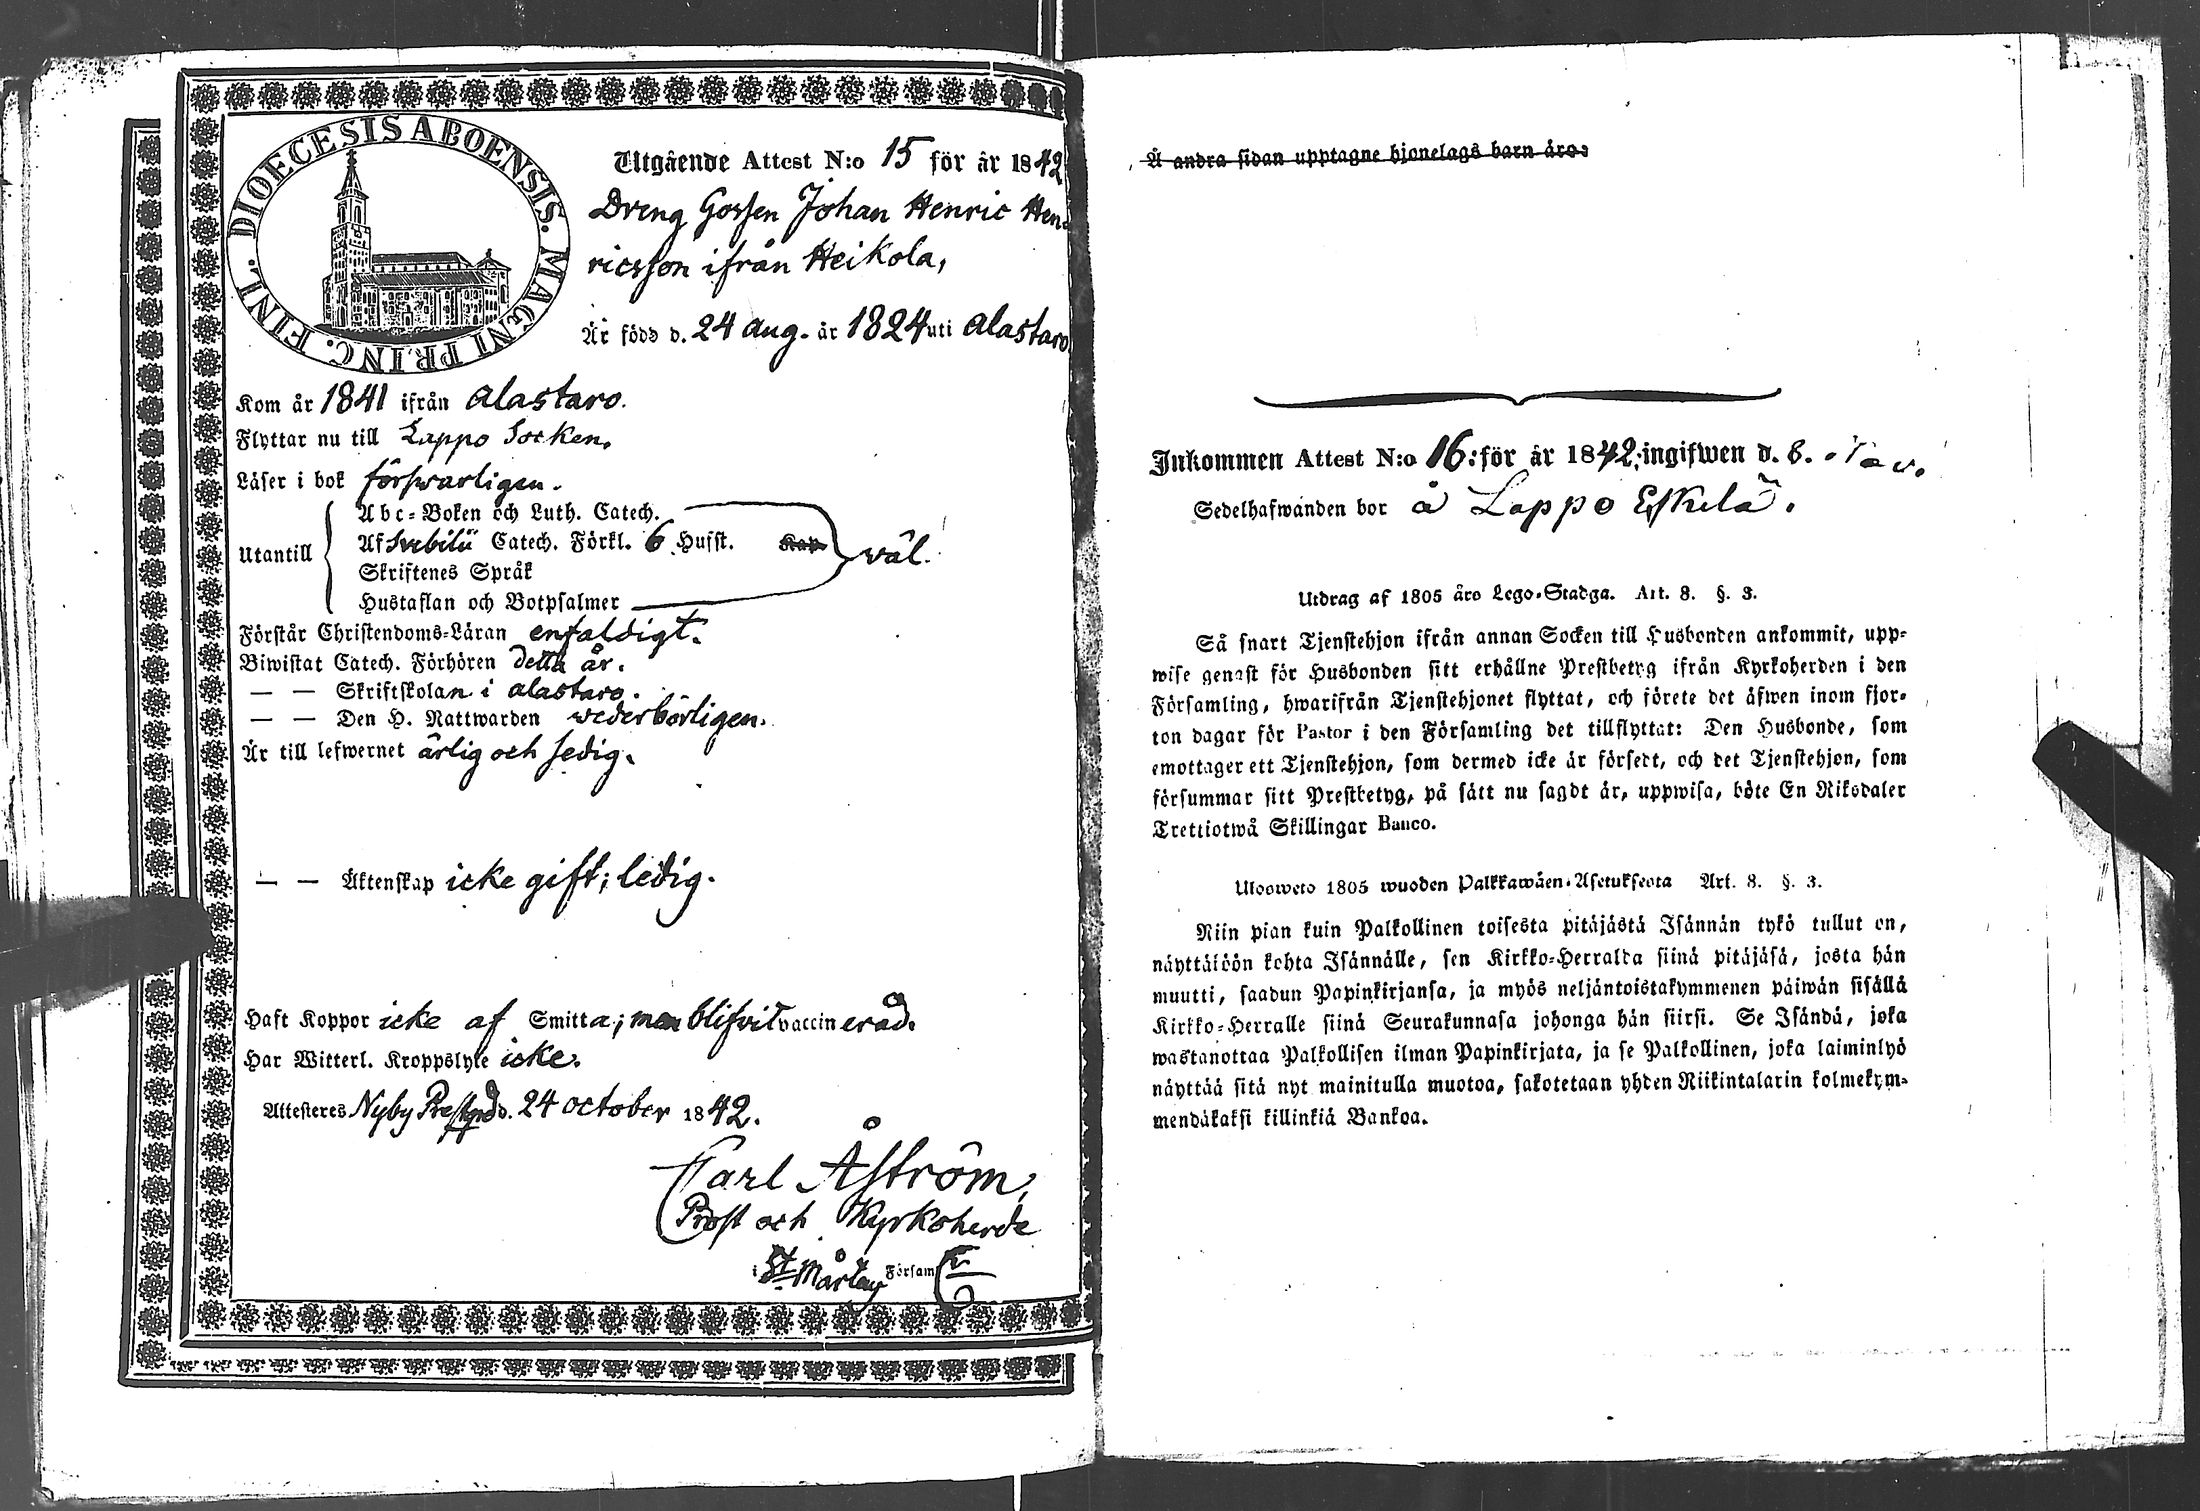 DIOECESIS ABOENSIS. MAGNI PRINC. FINL.
Utgående Attest N:o 15 för år 1842
Dreng Gossen Johan Henric Hen-
ricsson ifrån Heikola,
Är född d. 24 Aug. år 1824 uti Alastaro
Kom år 1841 ifrån Alastaro.
Flyttar nu till Lappo Socken.
Läser i bok försvarligen.
Utantill
Abc-Boken och Luth. Catech.
Af Svebilii Catech. Förkl. 6 Hufst. Kap.
Skriftenes Språk
Hustaflan och Botpsalmer
wäl.
Förstår Christendoms-Läran enfaldigt.
Biwistat Catech. Förhören detta år.
— — Skriftskolan i Alastaro.
— — Den H. Nattwarden wederbörligen.
Är till lefwernet ärlig och sedig.
— — Äktenskap icke gift; ledig.
Haft Koppor icke af Smitta; men blifvit vaccinerad.
Har Witterl. Kroppslyte icke.
Attesteres Nyby Prestgd d. 24 October 1842.
Carl Åström,
Prost och Kyrkoherde
i St Mårtens Församl.
Å andra sidan upptagne hjonelags barn äro:
Inkommen Attest N:o 16: för år 1842; ingifwen d. 8. Nov.
Sedelhafwanden bor å Lappo Eskelä.
Utdrag af 1805 års Lego-Stadga. Art. 8. §. 3.
Så snart Tjenstehjon ifrån annan Socken till Husbonden ankommit, upp-
wise genast för Husbonden sitt erhållne Prestbetyg ifrån Kyrkoherden i den
Församling, hwarifrån Tjenstehjonet flyttat, och förete det äfwen inom fjor-
ton dagar för Pastor i den Församling det tillflyttat: Den Husbonde, som
emottager ett Tjenstehjon, som dermed icke är försedt, och det Tjenstehjon, som
försummar sitt Prestbetyg, på sätt nu sagdt är, uppwisa, böte En Riksdaler
Trettiotwå Skillingar Banco.
Ulosweto 1805 wuoden Palkkawäen-Asetuksesta Art. 8. §. 3.
Niin pian kuin Palkollinen toisesta pitäjästä Isännän tykö tullut on,
näyttäköön kohta Isännälle, sen Kirkko-Herralta siinä pitäjäsä, josta hän
muutti, saadun Papinkirjansa, ja myös neljäntoistakymmenen päiwän sisällä
Kirkko-Herralle siinä Seurakunnasa johonga hän siirsi. Se Isändä, joka
wastanottaa Palkollisen ilman Papinkirjata, ja se Palkollinen, joka laiminlyö
näyttää sitä nyt mainitulla muotoa, sakotetaan yhden Riikintalarin kolmekym-
mendäkaksi killinkiä Bankoa.